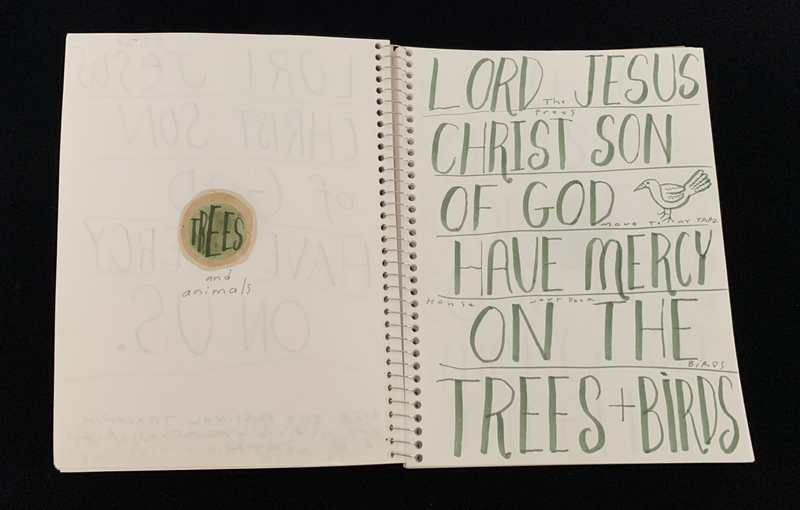 TREES
and
animals
LORD JESUS
The
trees
CHRIST SON
OF GOD
move to my YARD.
HAVE MERCY
House next Door
ON THE
BiRDS
TREES + BiRDS